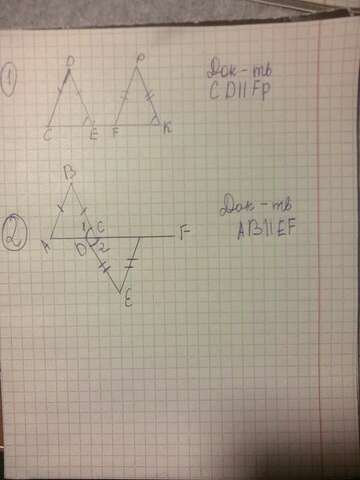 1
D
P
Док-ть
CD||Fp
C
E
F
K
B
2
Док-ть
AB||EF
A
1
C
D
2
F
E